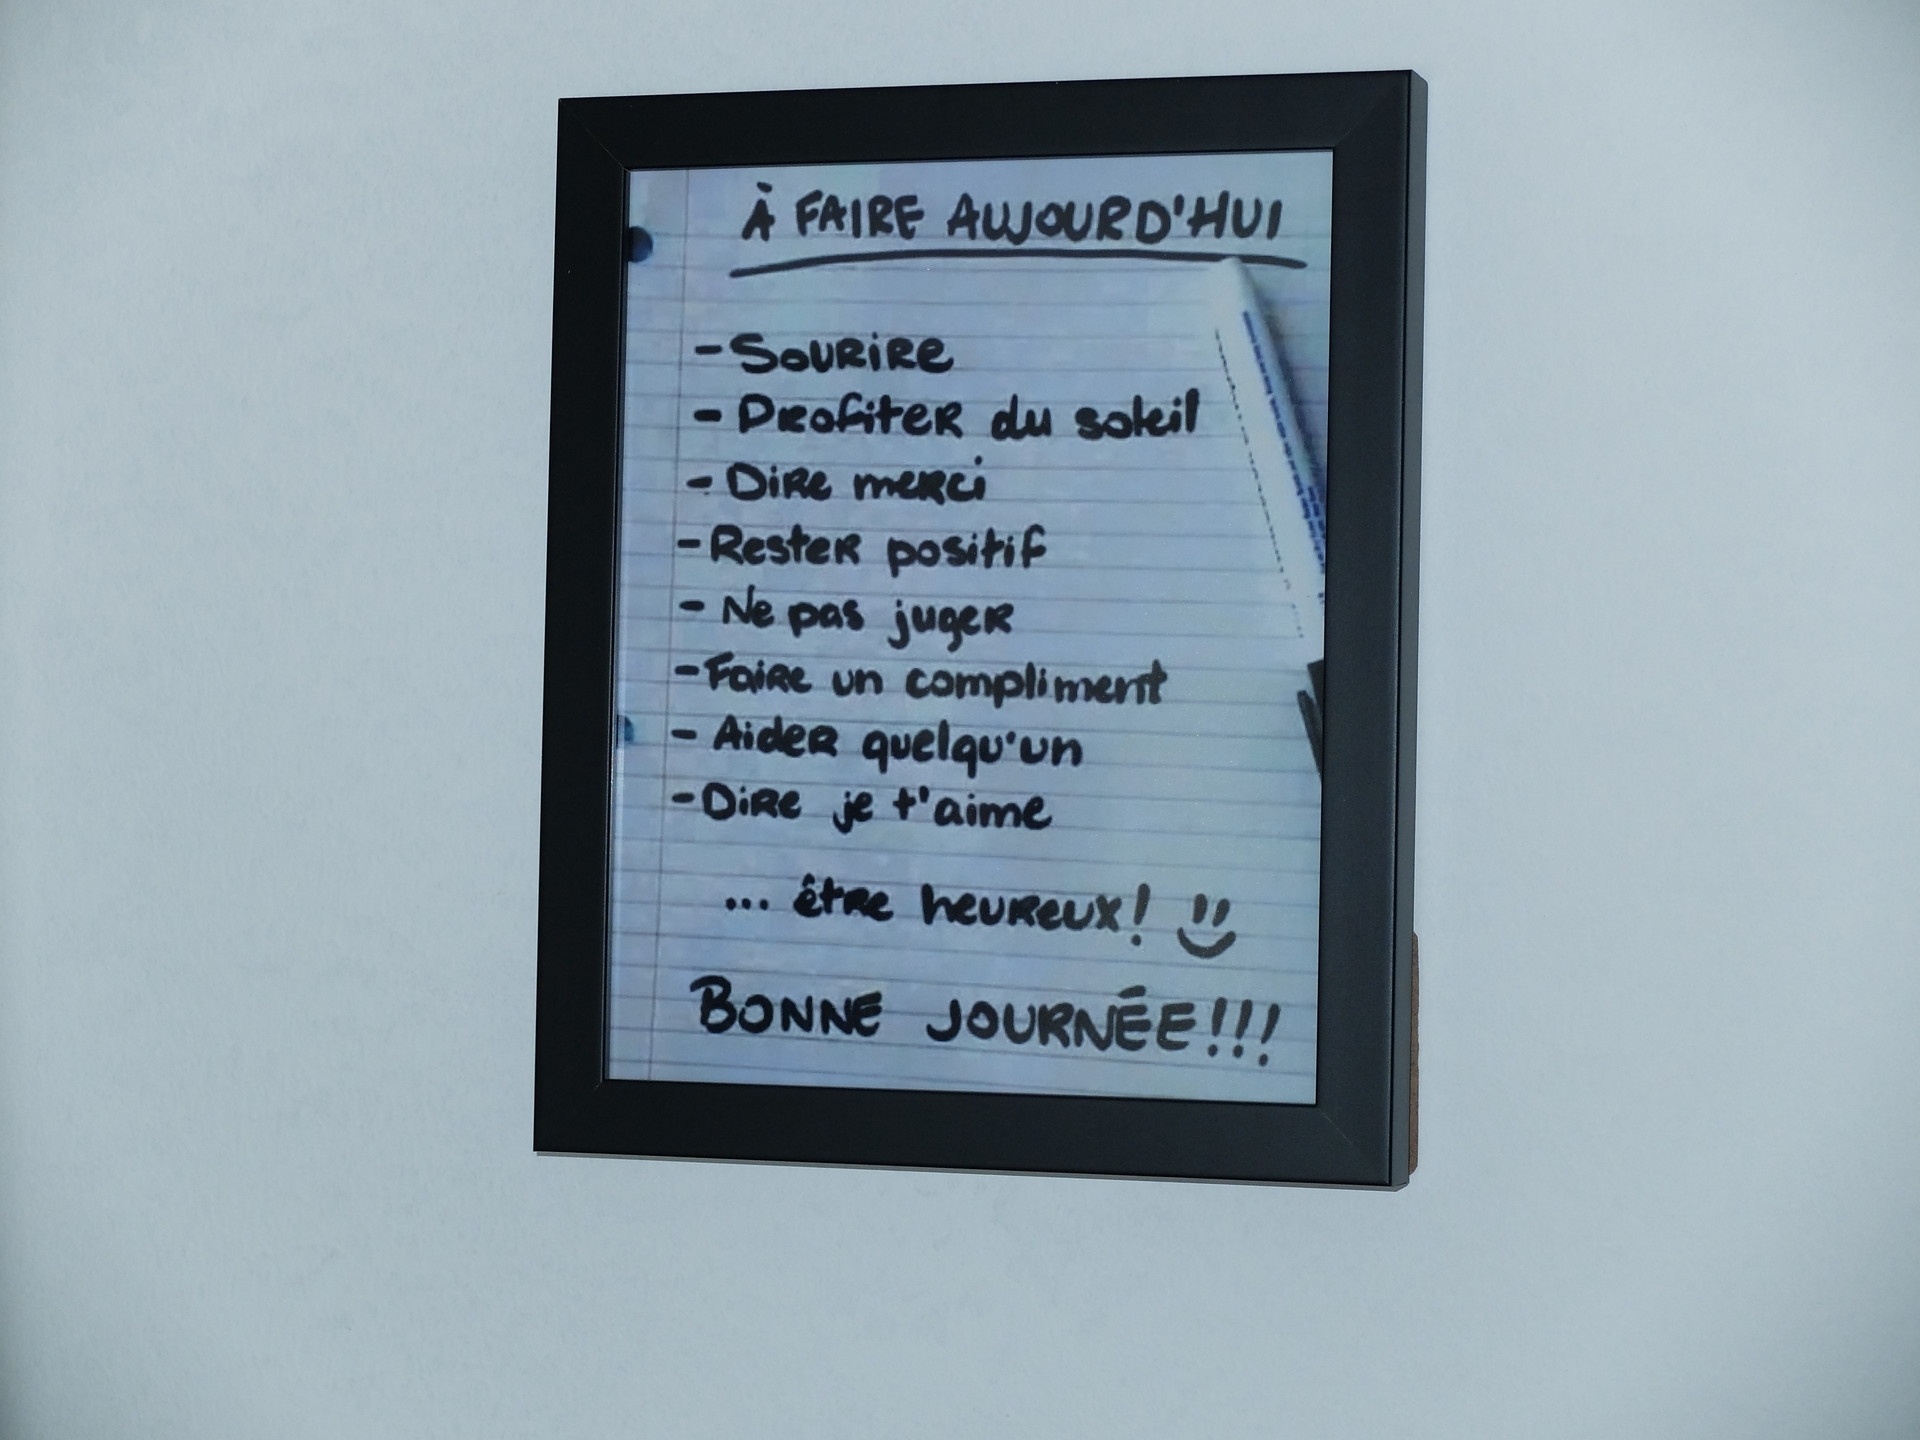 À FAIRE AUJOURD'HUI
- Sourire
- Profiter du soleil
- Dire merci
- Rester positif
- Ne pas juger
- Faire un compliment
- Aider quelqu'un
- Dire je t'aime
... être heureux!
BONNE JOURNÉE!!!